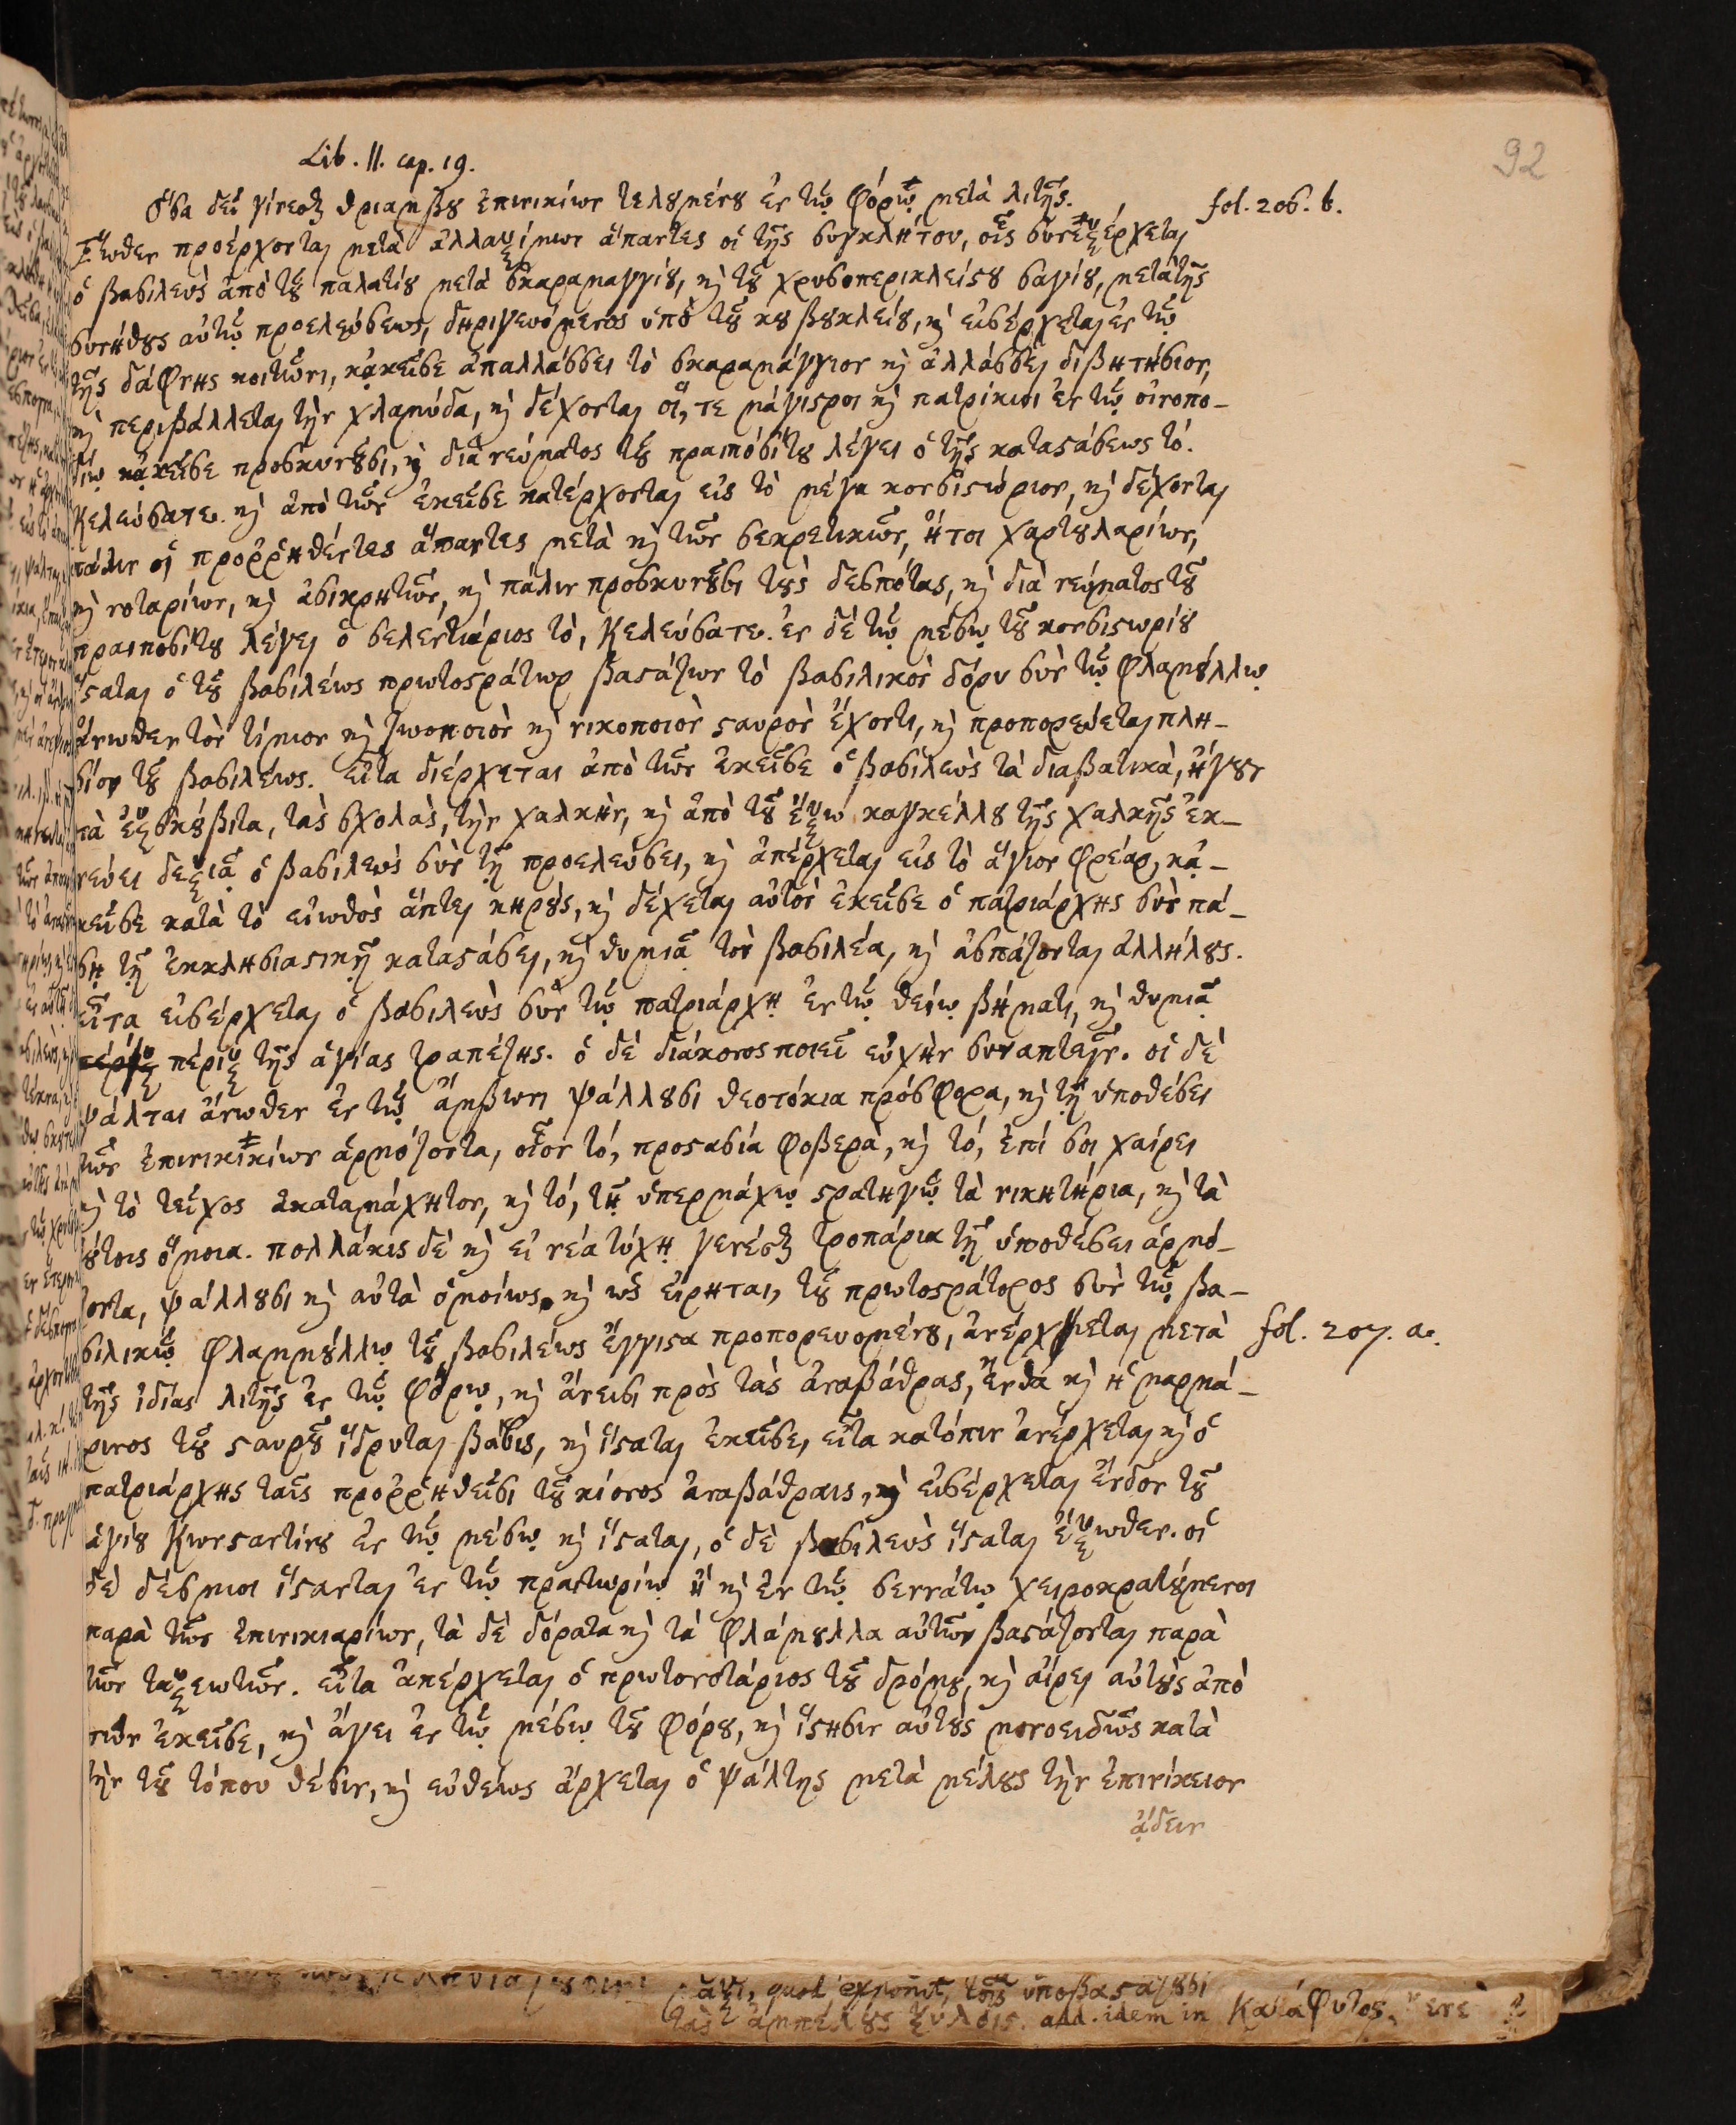 92
Lib. II. cap. 19.
Ὅσα δεῖ γίνεσθαι θριάμβου ἐπινικίων τελουμένου ἐν τῷ φόρῳ μετὰ λιτῆς. fol. 206. b.
Ἕωθεν προέρχονται μετὰ ἀλλαξίμων ἅπαντες οἱ τῆς συγκλήτου, οἷς συνεξέρχεται
ὁ βασιλεὺς ἀπὸ τοῦ παλατίου μετὰ σκαραμαγγίου, καὶ τοῦ χρυσοπερικλείστου σαγίου, μετὰ τῆς
συνήθους αὐτῷ προελεύσεως, δηριγευόμενος ὑπὸ τοῦ κουβουκλείου, καὶ εἰσέρχεται ἐν τῷ
τῆς δάφνης κοιτῶνι, κᾀκεῖσε ἀπαλλάσσει τὸ σκαραμάγγιον καὶ ἀλλάσσει διβητήσιον,
καὶ περιβάλλεται τὴν χλαμύδα, καὶ δέχονται οἵ, τε μάγιστροι καὶ πατρίκιοι ἐν τῷ ὀνοπο-
δίῳ κᾀκεῖσε προσκυνοῦσι, καὶ διὰ νεύματος τοῦ πραιποσίτου λέγει ὁ τῆς καταστάσεως τό.
Κελεύσατε. καὶ ἀπὸ τῶν ἐκεῖσε κατέρχονται εἰς τὸ μέγα κονσιστώριον, καὶ δέχονται
πάλιν οἱ προῤῥηθέντες ἅπαντες μετὰ καὶ τῶν σεκρετικῶν, ἤτοι χαρτουλαρίων,
καὶ νοταρίων, καὶ ἀσικρητῶν, καὶ πάλιν προσκυνοῦσι τοὺς δεσπότας, καὶ διὰ νεύματος τοῦ
πραιποσίτου λέγει ὁ σελεντιάριος τὸ, Κελεύσατε. ἐν δὲ τῷ μέσῳ τοῦ κονσιστωρίου
ἵσταται ὁ τοῦ βασιλέως πρωτοστράτωρ βαστάζων τὸ βασιλικὸν δόρυ σὺν τῷ φλαμούλλῳ
ἄνωθεν τὸν τίμιον καὶ ζωοποιὸν καὶ νικοποιὸν σταυρὸν ἔχοντι, καὶ προπορεύεται πλη-
σίον τοῦ βασιλέως. εἶτα διέρχεται ἀπὸ τῶν ἐκεῖσε ὁ βασιλεὺς τὰ διαβατικὰ, ἤγουν
τὰ ἐξσκούβιτα, τὰς σχολὰς, τὴν χαλκὴν, καὶ ἀπὸ τοῦ ἔξω καγκέλλου τῆς χαλκῆς ἐκ-
νεύει δεξιᾷ ὁ βασιλεὺς σὺν τῇ προελεύσει, καὶ ἀπέρχεται εἰς τὸ ἅγιον φρέαρ, κᾀ-
κεῖσε κατὰ τὸ εἰωθὸς ἅπτει κηροὺς, καὶ δέχεται αὐτὸν ἐκεῖσε ὁ πατριάρχης σὺν πά-
σῃ τῇ ἐκκλησιαστικῇ καταστάσει, καὶ θυμιᾷ τὸν βασιλέα, καὶ ἀσπάζονται ἀλλήλους.
εἶτα εἰσέρχεται ὁ βασιλεὺς σὺν τῷ πατριάρχῃ ἐν τῷ θείῳ βήματι, καὶ θυμιᾷ
πέριξ τῆς ἁγίας τραπέζης. ὁ δὲ διάκονος ποιεῖ εὐχὴν συναπτήν. οἱ δὲ
ψάλται ἄνωθεν ἐν τῷ ἄμβωνι ψάλλουσι θεοτόκια πρόσφορα, καὶ τῇ ὑποθέσει
τῶν ἐπινικίων ἁρμόζοντα, οἷον τό, προστασία φοβερὰ, καὶ τό, ἐπί σοι χαίρει
καὶ τὸ τεῖχος ἀκαταμάχητον, καὶ τό, τῇ ὑπερμάχῳ στρατηγῷ τὰ νικητήρια, καὶ τὰ
τούτοις ὅμοια. πολλάκις δὲ καὶ εἰ νέα τύχῃ γενέσθαι τροπάρια τῇ ὑποθέσει ἁρμό-
ζοντα, ψάλλουσι καὶ αὐτὰ ὁμοίως. καὶ ὡς εἴρηται, τοῦ πρωτοστράτορος σὺν τῷ βα-
σιλικῷ φλαμμούλλῳ τοῦ βασιλέως ἔγγιστα προπορευομένου, ἀνέρχεται μετὰ fol. 207. a.
τῆς ἰδίας λιτῆς ἐν τῷ φόρῳ, καὶ ἄνεισι πρὸς τὰς ἀναβάθρας, ἔνθα καὶ ἡ μαρμά-
ρινος τοῦ σταυροῦ ἵδρυται βάσις, καὶ ἵσταται ἐκεῖσε, εἶτα κατόπιν ἀνέρχεται καὶ ὁ
πατριάρχης ταῖς προῤῥηθείσι τοῦ κίονος ἀναβάθραις, καὶ εἰσέρχεται ἔνδον τοῦ
ἁγίου Κωνσταντίνου ἐν τῷ μέσῳ καὶ ἵσταται, ὁ δὲ βασιλεὺς ἵσταται ἔξωθεν. οἱ
δὲ δέσμιοι ἵστανται ἐν τῷ πραιτωρίῳ ἢ καὶ ἐν τῷ σεννάτῳ χειροκρατούμενοι
παρὰ τῶν ἐπινικιαρίων, τὰ δὲ δόρατα καὶ τὰ φλάμουλλα αὐτῶν βαστάζονται παρὰ
τῶν ταξεωτῶν. εἶτα ἀπέρχεται ὁ πρωτονοτάριος τοῦ δρόμου, καὶ αἴρει αὐτοὺς ἀπὸ
τῶν ἐκεῖσε, καὶ ἄγει ἐν τῷ μέσῳ τοῦ φόρου, καὶ ἵστησιν αὐτοὺς μονοειδῶς κατὰ
τὴν τοῦ τόπου θέσιν, καὶ εὐθέως ἄρχεται ὁ ψάλτης μετὰ μέλους τὴν ἐπινίκειον
ᾄδειν
quod exponit, τοῖς ὑποβαστάζουσι
τὰς ἀμπέλους ξύλοις. add. idem in Κατάφυτος.